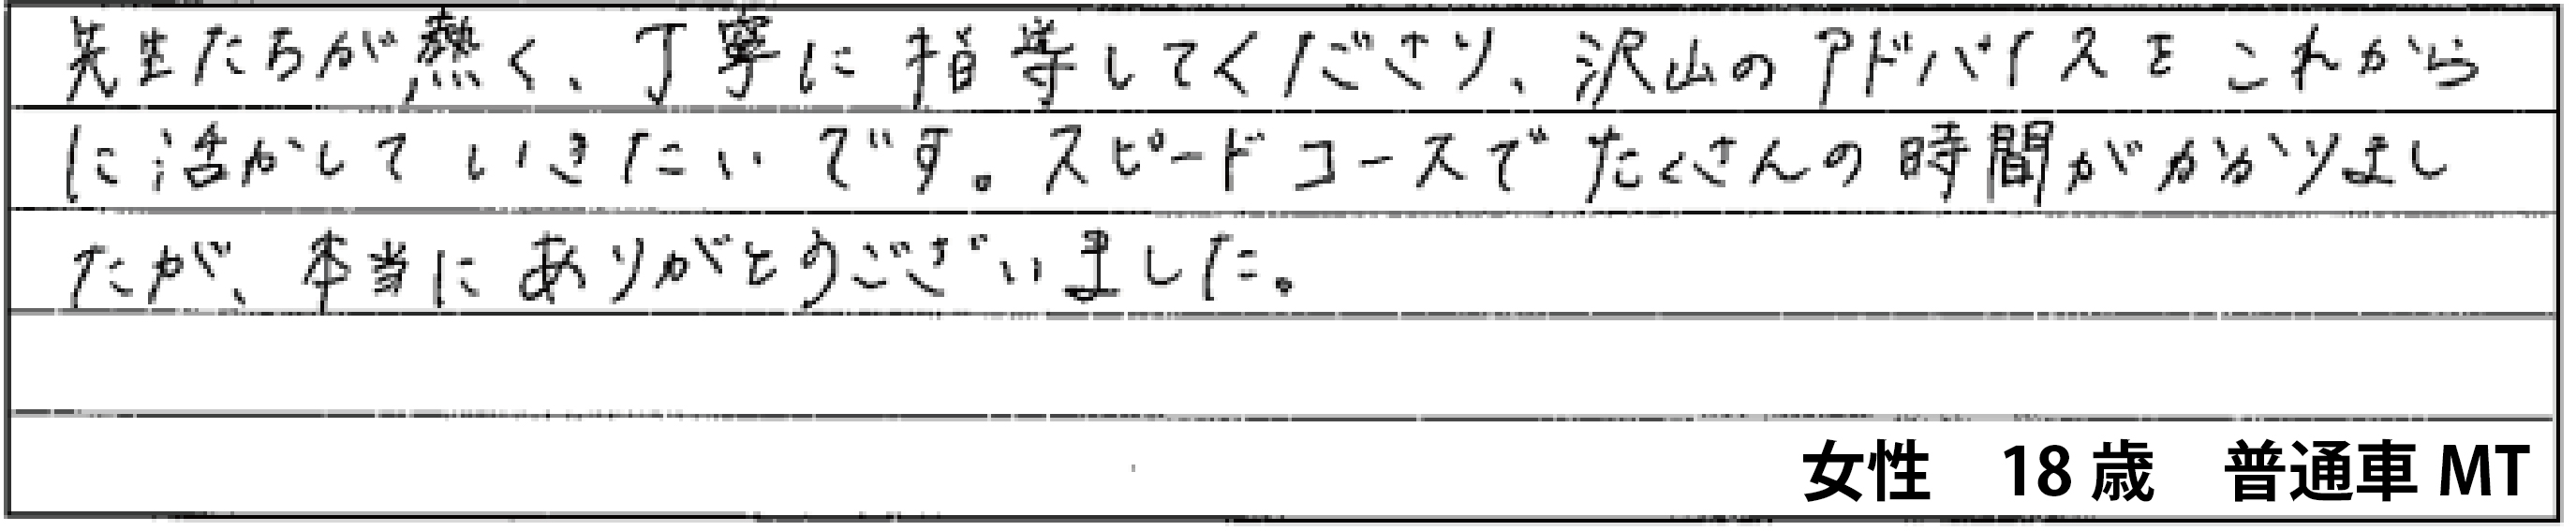 先生たちが熱く、丁寧に指導してくださり、沢山のアドバイスをこれから
に活かしていきたいです。スピードコースでたくさんの時間がかかりまし
たが、本当にありがとうございました。
女性　18歳　普通車MT